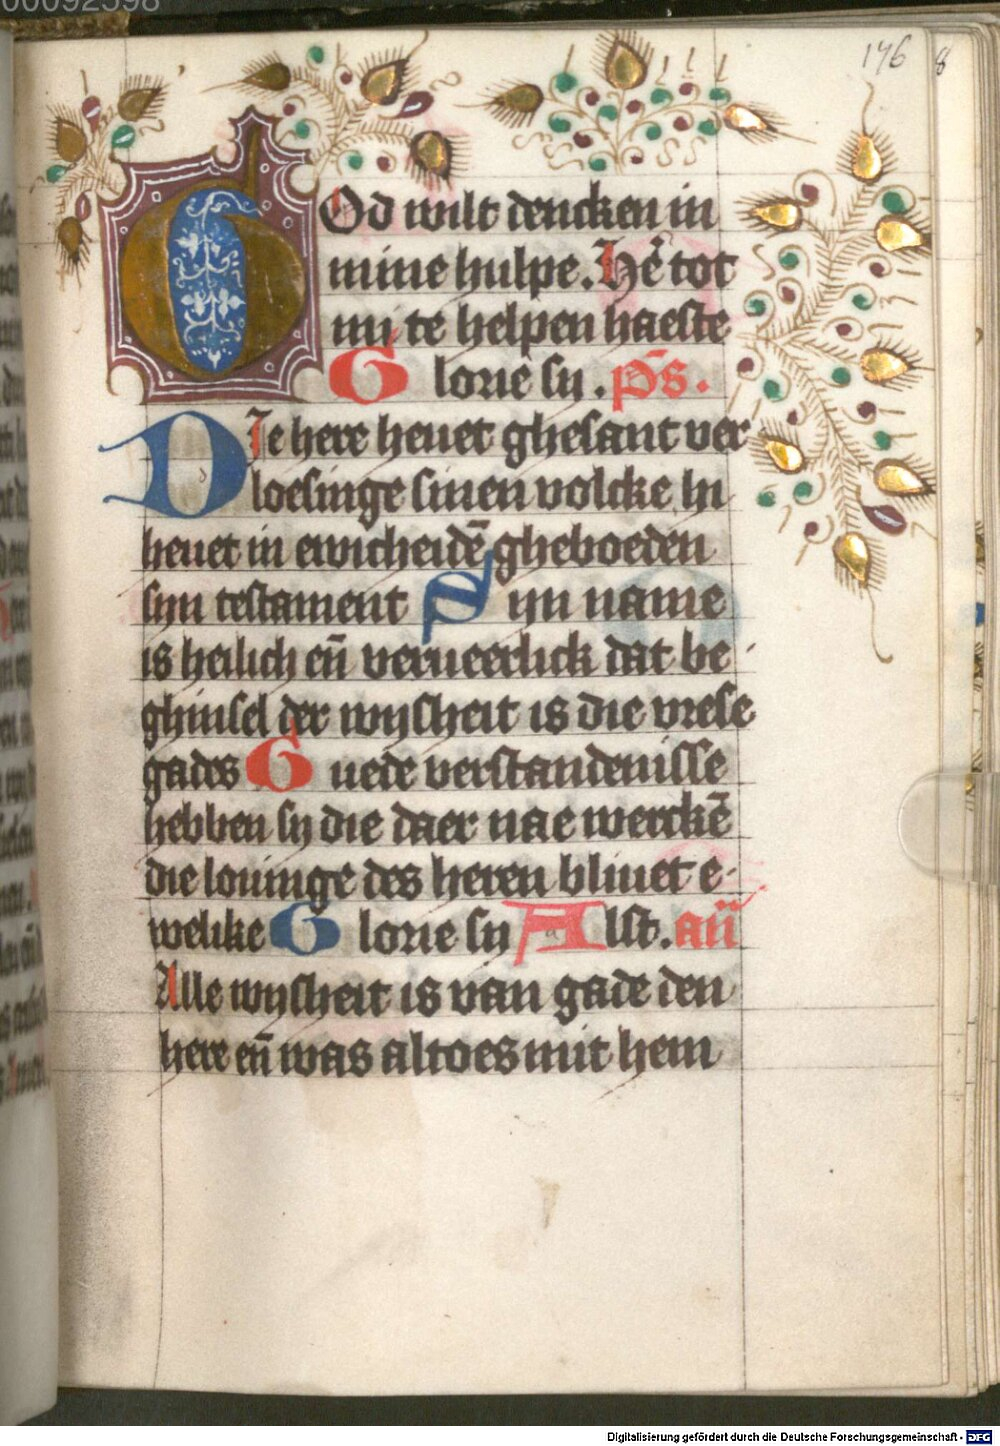 00092598
176 8
God wilt dencken in
mine hulpe. Hẽ tot
mi te helpen haeste
Glorie sy. p̃s.
DIe here heuet ghesant ver
loesinge sinen volcke hi
heuet in ewicheidẽ gheboeden
syn testament Syn name
is heilich eñ verueerlick dat be
ghinsel der wysheit is die vrese
gades Guede verstandenisse
hebben sy die daer nae werckẽ
die louinge des heren bliuet e-
welike Glorie sy Alst. añ
Alle wysheit is van gade den
here eñ was altoes mit hem
Digitalisierung gefördert durch die Deutsche Forschungsgemeinschaft - DFG